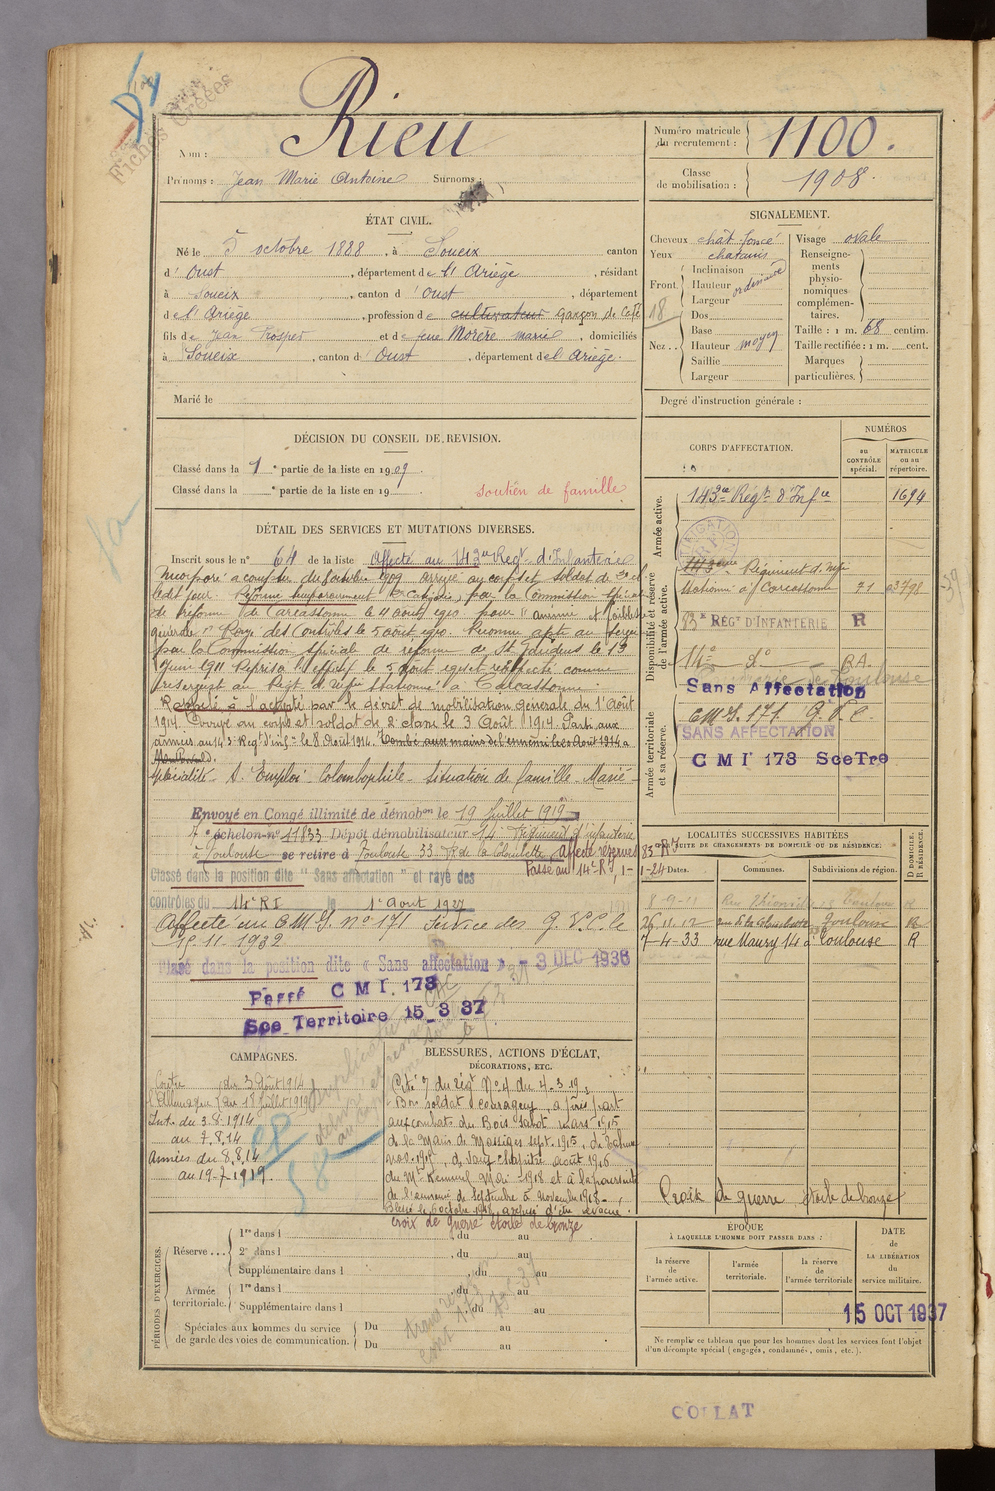 Fichés Créées
Nom : Rieu
Prénoms : Jean Marie Antoine Surnoms :
Numéro matricule du recrutement : 1100.
Classe de mobilisation : 1908.
ÉTAT CIVIL.
Né le 5 octobre 1888, à Soueix canton
d'Oust, département de l'Ariège, résidant
à Soueix, canton d'Oust, département
de l'Ariège, profession de cultivateur garçon de café
fils de Jean Prosper et de feue Morère marie, domiciliés
à Soueix, canton d'Oust, département de l'Ariège.
Marié le
SIGNALEMENT.
Cheveux chat. foncé
Yeux chatains
Front. Inclinaison
Hauteur ordinaire
Largeur
Nez. Dos
Base
Hauteur moyen
Saillie
Largeur
Visage ovale
Renseignements physionomiques complémentaires.
Taille : 1 m. 68 centim.
Taille rectifiée : 1 m. cent.
Marques particulières.
Degré d'instruction générale :
DÉCISION DU CONSEIL DE REVISION.
Classé dans la 1e partie de la liste en 1909.
Classé dans la e partie de la liste en 19
soutien de famille
DÉTAIL DES SERVICES ET MUTATIONS DIVERSES.
Inscrit sous le n° 64 de la liste Affecté au 143me Regt d'Infanterie
Incorporé à compter du 8 octobre 1909 arrivé au corps et soldat de 2e cl
ledit jour. Réformé temporairement par la Commission spéciale
de réforme de Carcassonne le 4 août 1910 pour "anémie et faiblesse
générale". Rayé des Contrôles le 5 août 1910. Reconnu apte au service
par la Commission spéciale de réforme de St Gaudens le 13
Juin 1911
réserviste au Regt d'Infie stationné à Carcassonne.
Rappelé à l'activité par le décret de mobilisation générale du 1er août
1914. Arrivé au corps et soldat de 2e classe le 3 Août 1914. Parti aux
armées au 143e Regt d'Inf. le 8 Août 1914. Tombé aux mains de l'ennemi le 20 Août 1914 à
Spécialité S. Emploi Colombophile. Situation de famille Marié
Envoyé en Congé illimité de démobon le 19 Juillet 1919
7e échelon n° 11833 Dépôt démobilisateur 14e Régiment d'infanterie
à Toulouse se retire à Toulouse 33 R. de la Colombette Affecté réserves 83e RI
Passé au 14e RI, 1-1-24
Classé dans la position dite "Sans affectation" et rayé des
contrôles du 14e RI le 1er Août 1927
Affecté au C.M.I. n° 171 Service des G.V.C. le
15.11.1932
Classé dans la position dite « Sans affectation » - 3 DEC 1936
Passé C M I. 173
Sce Territoire 15_3 37
CORPS D'AFFECTATION.
NUMÉROS
au CONTRÔLE spécial.
MATRICULE ou au répertoire.
Armée active.
143me Régt d'Infie 1694
Disponibilité et réserve de l'armée active.
143eme Régiment d'Infie
stationné à Carcassonne 71
83e RÉGt D'INFANTERIE R
14e do R.A.
Sans Affectation
Armée territoriale et sa réserve.
C.M.I. 171 G.V.C.
SANS AFFECTATION
CMI 173 SceTre
LOCALITÉS SUCCESSIVES HABITÉES
PAR SUITE DE CHANGEMENTS DE DOMICILE OU DE RÉSIDENCE.
Dates. Communes. Subdivisions de région. D DOMICILE. R RÉSIDENCE.
8-9-11 Toulouse
26.11.12 rue de la Colombette 33 Toulouse R
7-4-33 rue Maury 14 à Toulouse R
CAMPAGNES.
Contre l'Allemagne du 3 Août 1914
au 18 Juillet 1919
Int. du 3.8.1914
au 7.8.14
Armées du 8.8.14
au 19-7-1919
BLESSURES, ACTIONS D'ÉCLAT,
DÉCORATIONS, ETC.
Cité O. du régt N° 4 du 4-3-19,
Bon soldat courageux, a pris part
aux combats du Bois Sabot mars 1915
de la Main de Massiges sept. 1915, de Tahure
nov. 1915, août 1916
du Mt Kemmel Mai 1918 et à la poursuite
de l'ennemi de septembre à novembre 1918
Blessé le octobre 1918, a refusé d'être évacué.
croix de guerre étoile de bronze
Croix de guerre étoile de bronze
PÉRIODES D'EXERCICES.
Réserve... 1re dans l du au
2e dans l du au
Supplémentaire dans l du au
Armée territoriale. 1re dans l du au
Supplémentaire dans l du au
Spéciales aux hommes du service de garde des voies de communication. Du au
Du au
ÉPOQUE
À LAQUELLE L'HOMME DOIT PASSER DANS :
la réserve de l'armée active.
l'armée territoriale.
la réserve de l'armée territoriale
DATE de LA LIBÉRATION du service militaire.
15 OCT 1937
Ne remplir ce tableau que pour les hommes dont les services font l'objet
d'un décompte spécial (engagés, condamnés, omis, etc.).
COLLAT